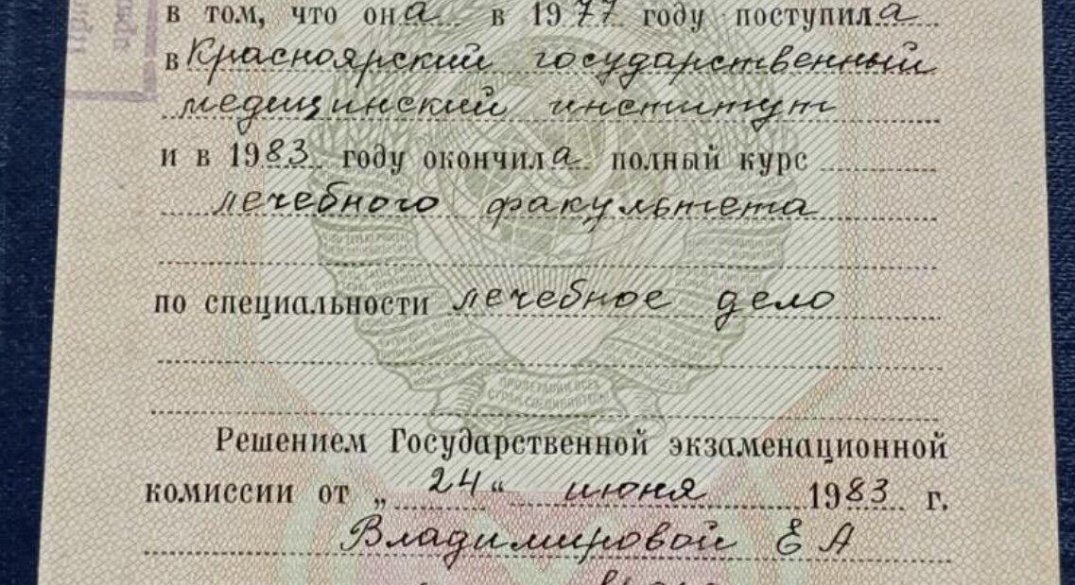 в том, что она в 1977 году поступила
в Красноярский государственный
медицинский институт
и в 1983 году окончила полный курс
лечебного факультета
по специальности лечебное дело
ПРОЛЕТАРИИ ВСЕХ
СТРАН, СОЕДИНЯЙТЕСЬ!
Решением Государственной экзаменационной
комиссии от „ 24 “ июня 1983 г.
Владимировой Е А